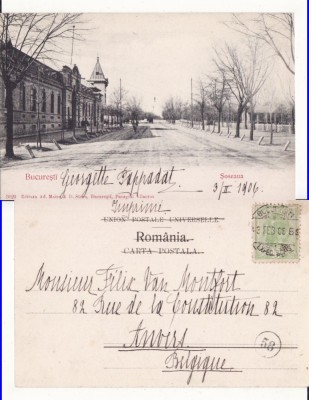 București
Șoseaua
Georgette Pappadat
3/II 1906.
Imprimé
UNION POSTALE UNIVERSELLE
România.
CARTA POSTALA.
Monsieur Félix Van Montfort
82 Rue de la Constitution 82
Anvers
Belgique
58